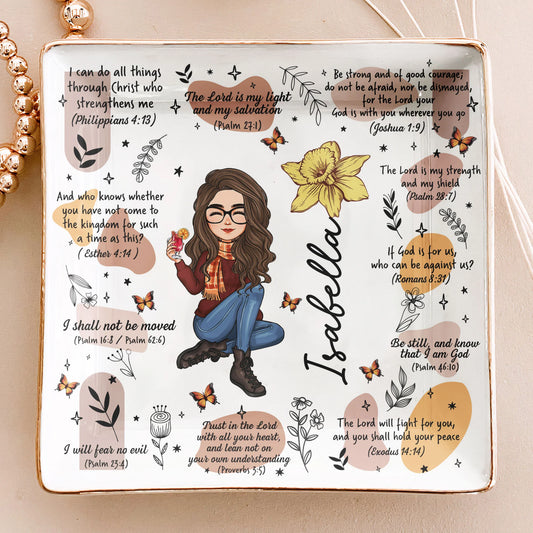 I can do all things
through Christ who
strengthens me
(Philippians 4:13)
The Lord is my light
and my salvation
(Psalm 27:1)
Be strong and of good courage;
do not be afraid, nor be dismayed,
for the Lord your
God is with you wherever you go
(Joshua 1:9)
And who knows whether
you have not come to
the kingdom for such
a time as this?
( Esther 4:14 )
The Lord is my strength
and my shield
(Psalm 28:7)
If God is for us,
who can be against us?
(Romans 8:31)
Isabella
I shall not be moved
(Psalm 16:8 / Psalm 62:6)
Be still, and know
that I am God
(Psalm 46:10)
I will fear no evil
(Psalm 23:4)
Trust in the Lord
with all your heart,
and lean not on
your own understanding
(Proverbs 3:5)
The Lord will fight for you,
and you shall hold your peace
(Exodus 14:14)